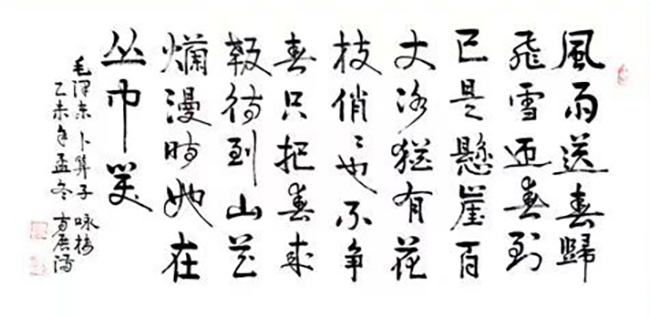 風雨送春歸
飛雪迎春到
已是懸崖百
丈冰猶有花
枝俏々也不争
春只把春来
報待到山花
爛漫時她在
丛中笑
毛泽东卜算子咏梅
乙未年孟冬